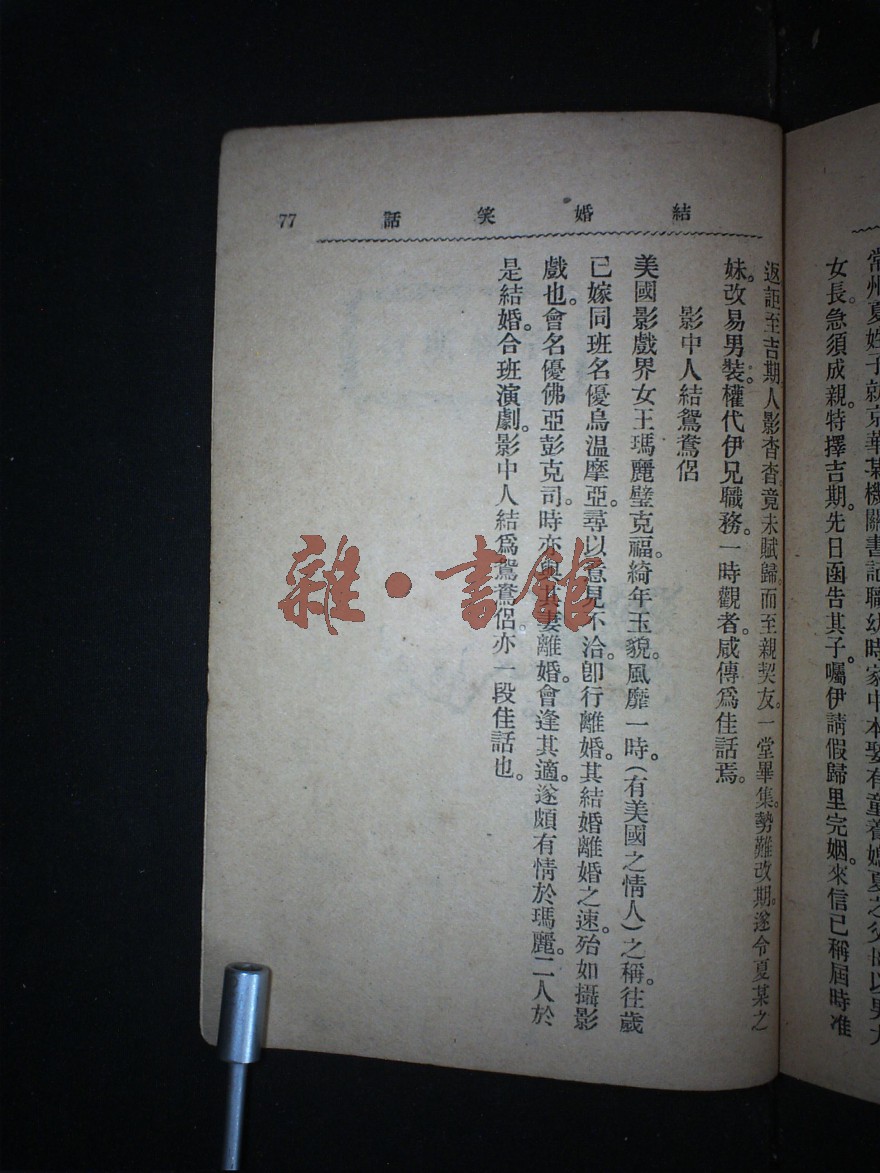 常州夏姓子就京華某機關書記職幼時家中本娶有童養媳夏之父母以男大
女長。急須成親。特擇吉期。先日函告其子。囑伊請假歸里完姻。來信已稱屆時准
結婚笑話 77
返詎至吉期。人影杳杳。竟未賦歸。而至親契友。一堂畢集。勢難改期。遂令夏某之
妹。改易男裝。權代伊兄職務。一時觀者。咸傳爲佳話焉。
影中人結鴛鴦侶
美國影戲界女王瑪麗璧克福。綺年玉貌。風靡一時。(有美國之情人)之稱。往歲
已嫁同班名優烏温摩亞。尋以意見不洽。卽行離婚。其結婚離婚之速。殆如攝影
戲也。會名優佛亞彭克司。時亦與其妻離婚。會逢其適。遂頗有情於瑪麗。二人於
是結婚。合班演劇。影中人結爲鴛鴦侶。亦一段佳話也。
雜·書館